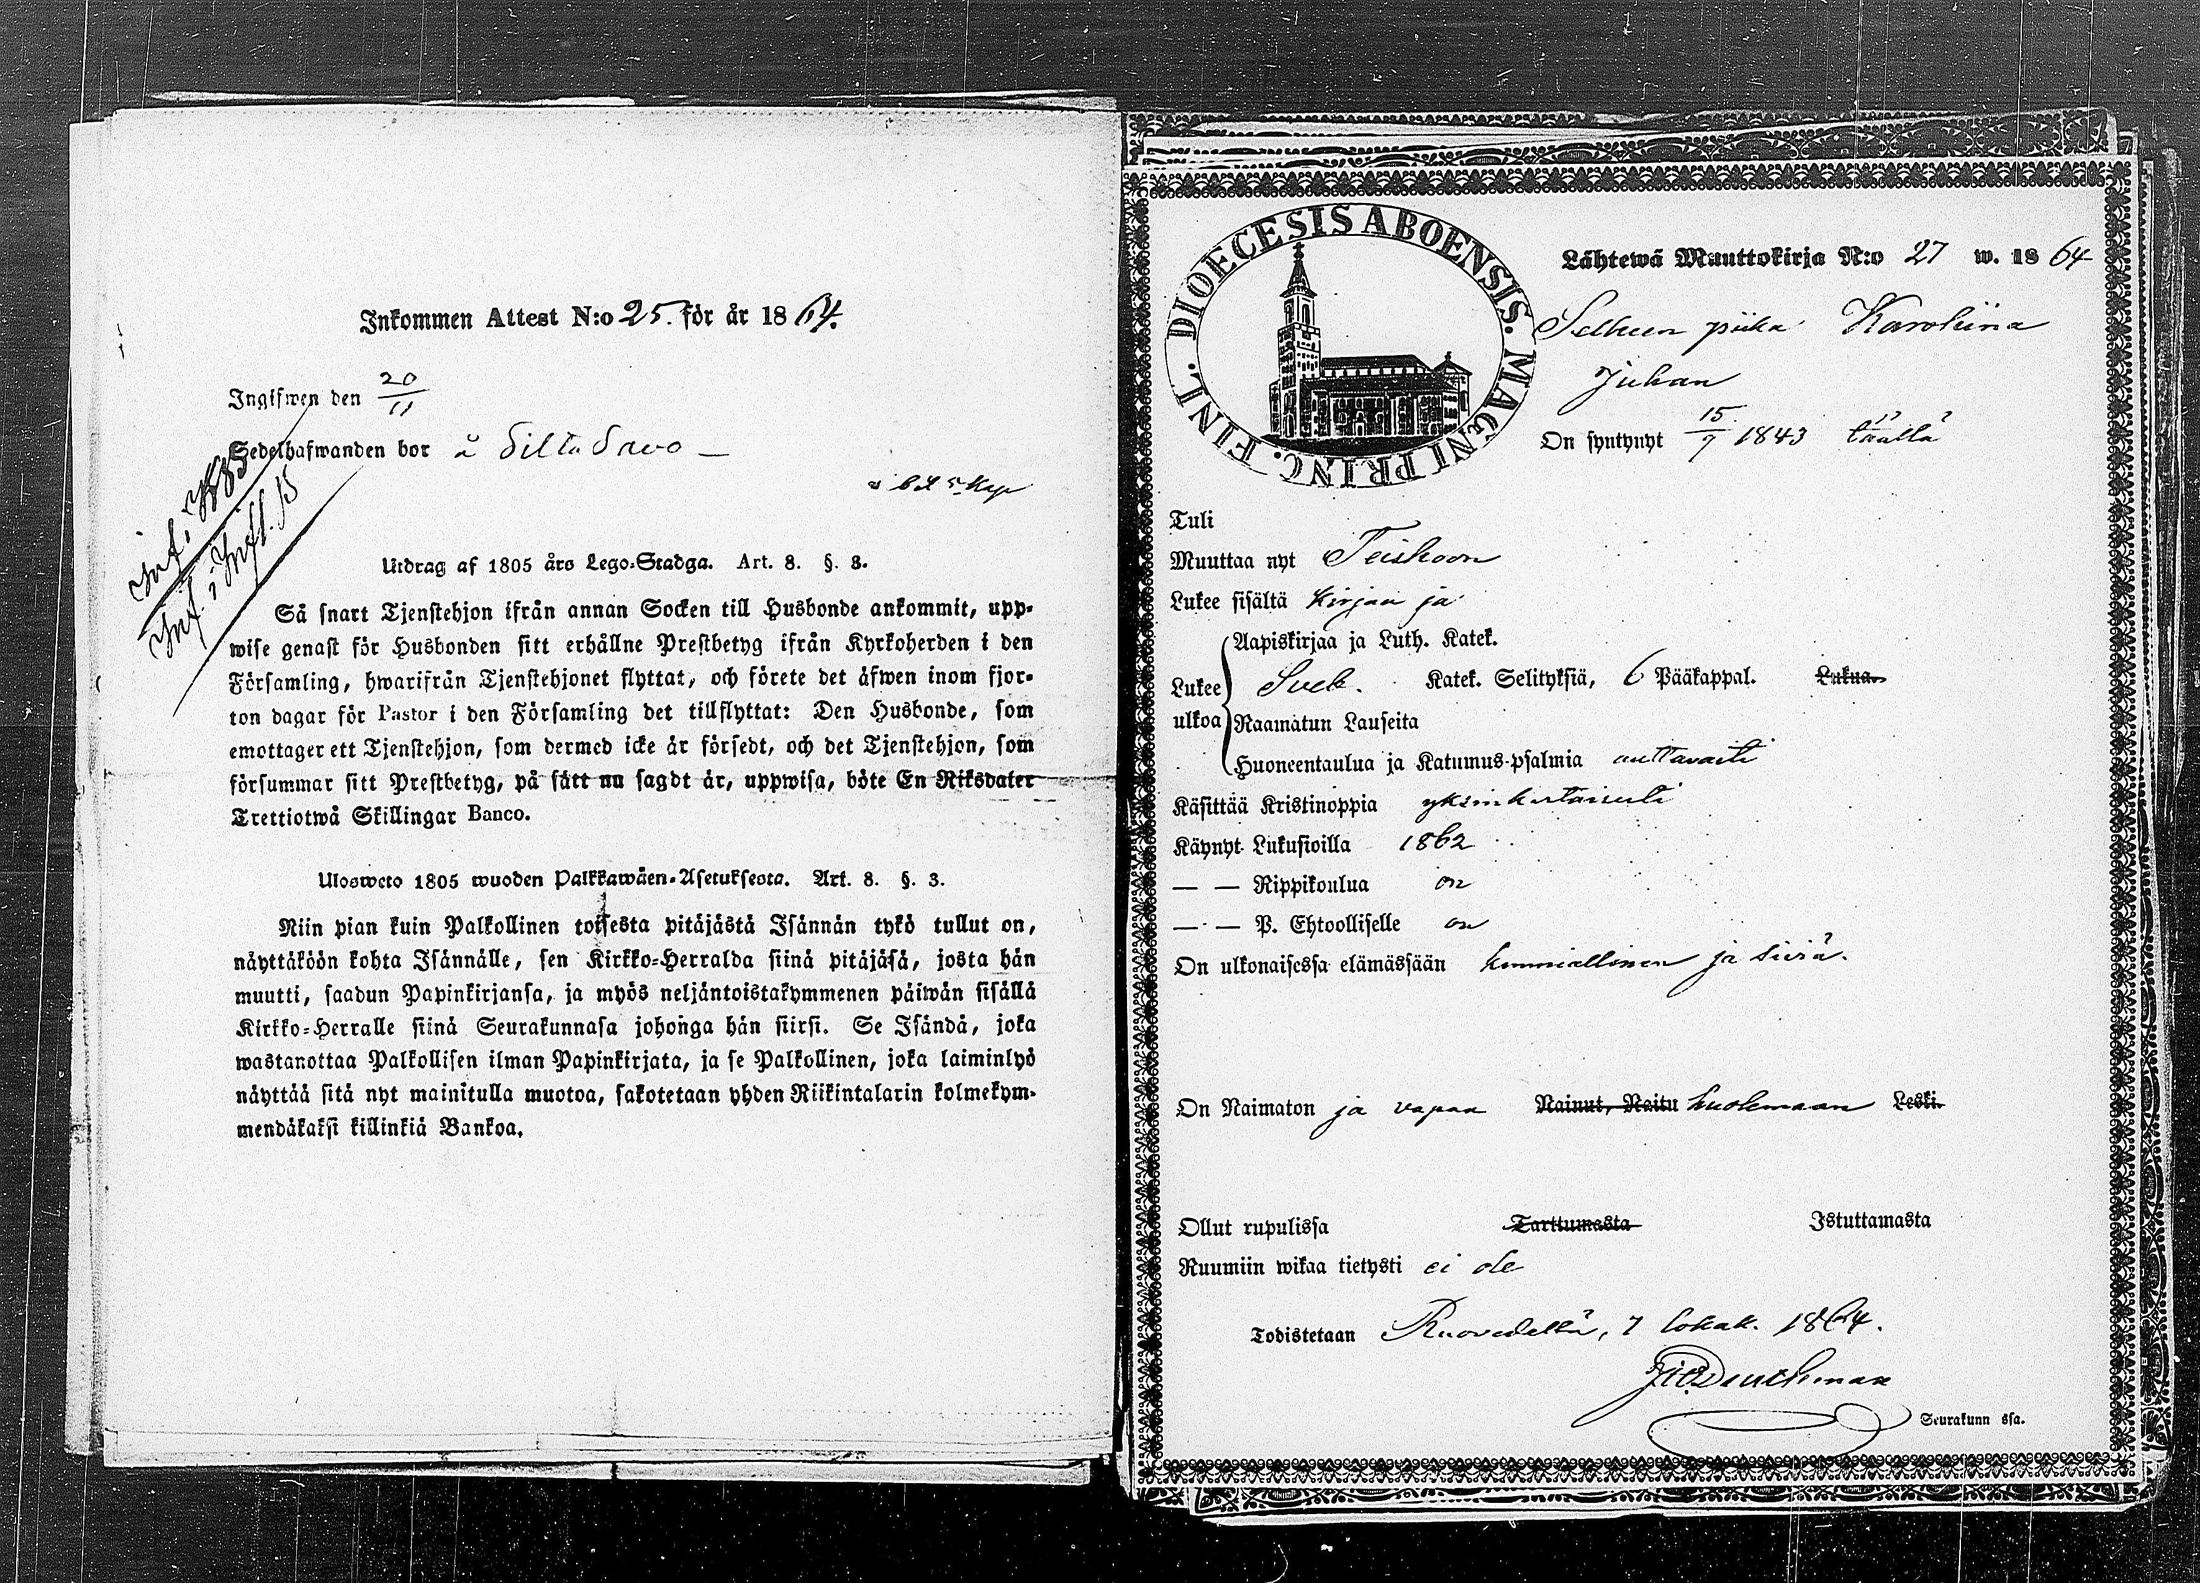 Inkommen Attest N:o 25. för år 1864.
Ingifwen den 20/11
Sedelhafwanden bor å Silta Savo
Utdrag af 1805 års Lego-Stadga. Art. 8. §. 3.
Så snart Tjenstehjon ifrån annan Socken till Husbonde ankommit, upp-
wise genast för Husbonden sitt erhållne Prestbetyg ifrån Kyrkoherden i den
Församling, hwarifrån Tjenstehjonet flyttat, och förete det äfwen inom fjor-
ton dagar för Pastor i den Församling det tillflyttat: Den Husbonde, som
emottager ett Tjenstehjon, som dermed icke är försedt, och det Tjenstehjon, som
försummar sitt Prestbetyg, på sätt nu sagdt är, uppwisa, böte En Riksdaler
Trettiotwå Skillingar Banco.
Ulosweto 1805 wuoden Palkkawäen-Asetuksesta. Art. 8. §. 3.
Niin pian kuin Palkollinen toisesta pitäjästä Isännän tykö tullut on,
näyttäköön kohta Isännälle, sen Kirkko-Herralda siinä pitäjäsä, josta hän
muutti, saadun Papinkirjansa, ja myös neljäntoistakymmenen päiwän sisällä
Kirkko-Herralle siinä Seurakunnasa johonga hän siirsi. Se Isändä, joka
wastanottaa Palkollisen ilman Papinkirjata, ja se Palkollinen, joka laiminlyö
näyttää sitä nyt mainitulla muotoa, sakotetaan yhden Riikintalarin kolmekym-
mendäkaksi killinkiä Bankoa.
DIOECESIS ABOENSIS. MAGNI PRINC. FINL.
Lähtewä Muuttokirja N:o 27 w. 1864
Selkeen piika Karoliina
Juhan
On syntynyt 15/7 1843 täällä
Tuli
Muuttaa nyt Teiskoon
Lukee sisältä kirjaa ja
Aapiskirjaa ja Luth. Katek.
Lukee ulkoa Sveb. Katek. Selityksiä, 6 Pääkappal. Lukua.
Raamatun Lauseita
Huoneentaulua ja Katumus-psalmia auttavasti
Käsittää Kristinoppia yksinkertaisesti
Käynyt Lukusioilla 1862
— — Rippikoulua on
— — P. Ehtoolliselle on
On ulkonaisessa elämässään kunniallinen ja siviä.
On Naimaton ja vapaa Nainut, Naitu huolemaan Leski.
Ollut rupulissa Tarttumasta Istuttamasta
Ruumiin wikaa tietysti ei ole
Todistetaan Ruovedellä, 7 lokak. 1864.
Seurakunn ssa.